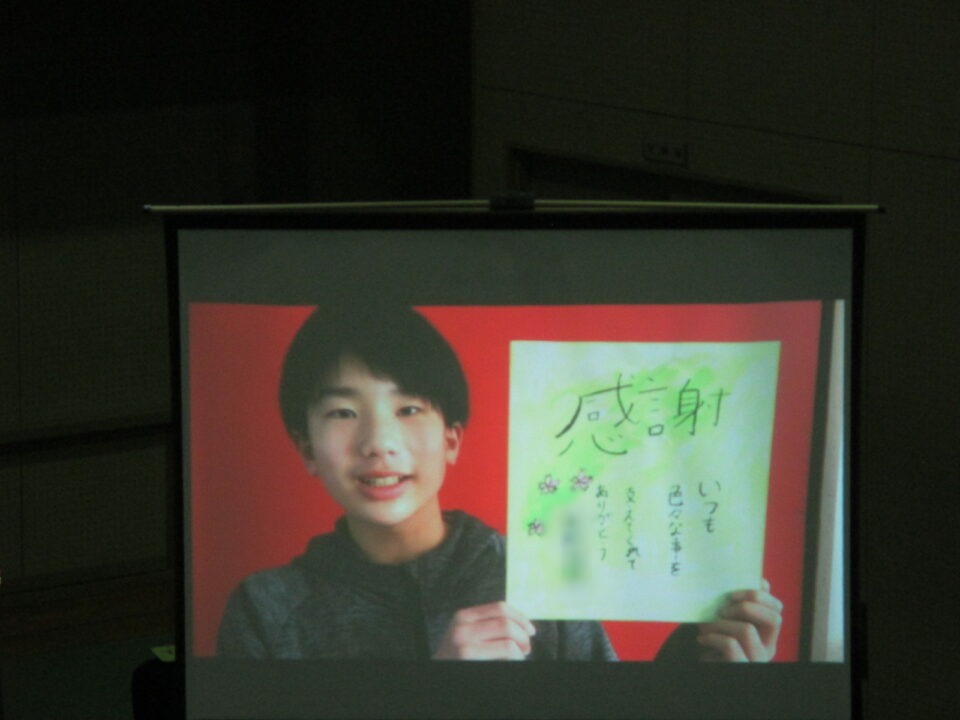 感謝
いつも
色々な事を
支えてくれて
ありがとう